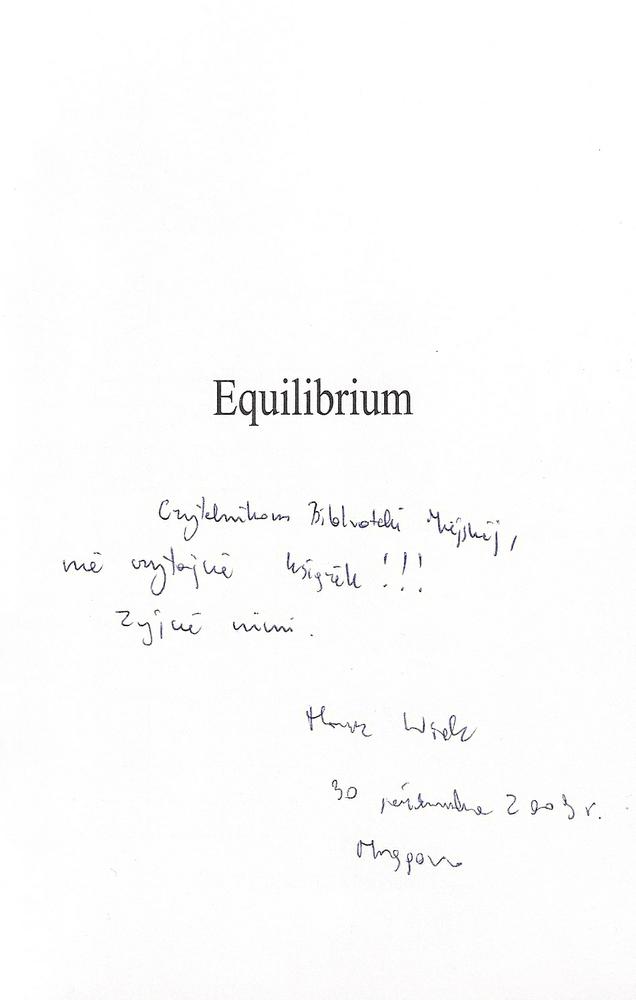 Equilibrium
Czytelnikom Biblioteki Miejskiej,
nie czytajcie książek!!!
Żyjcie nimi.
30 października 2003 r.
Mrągowo